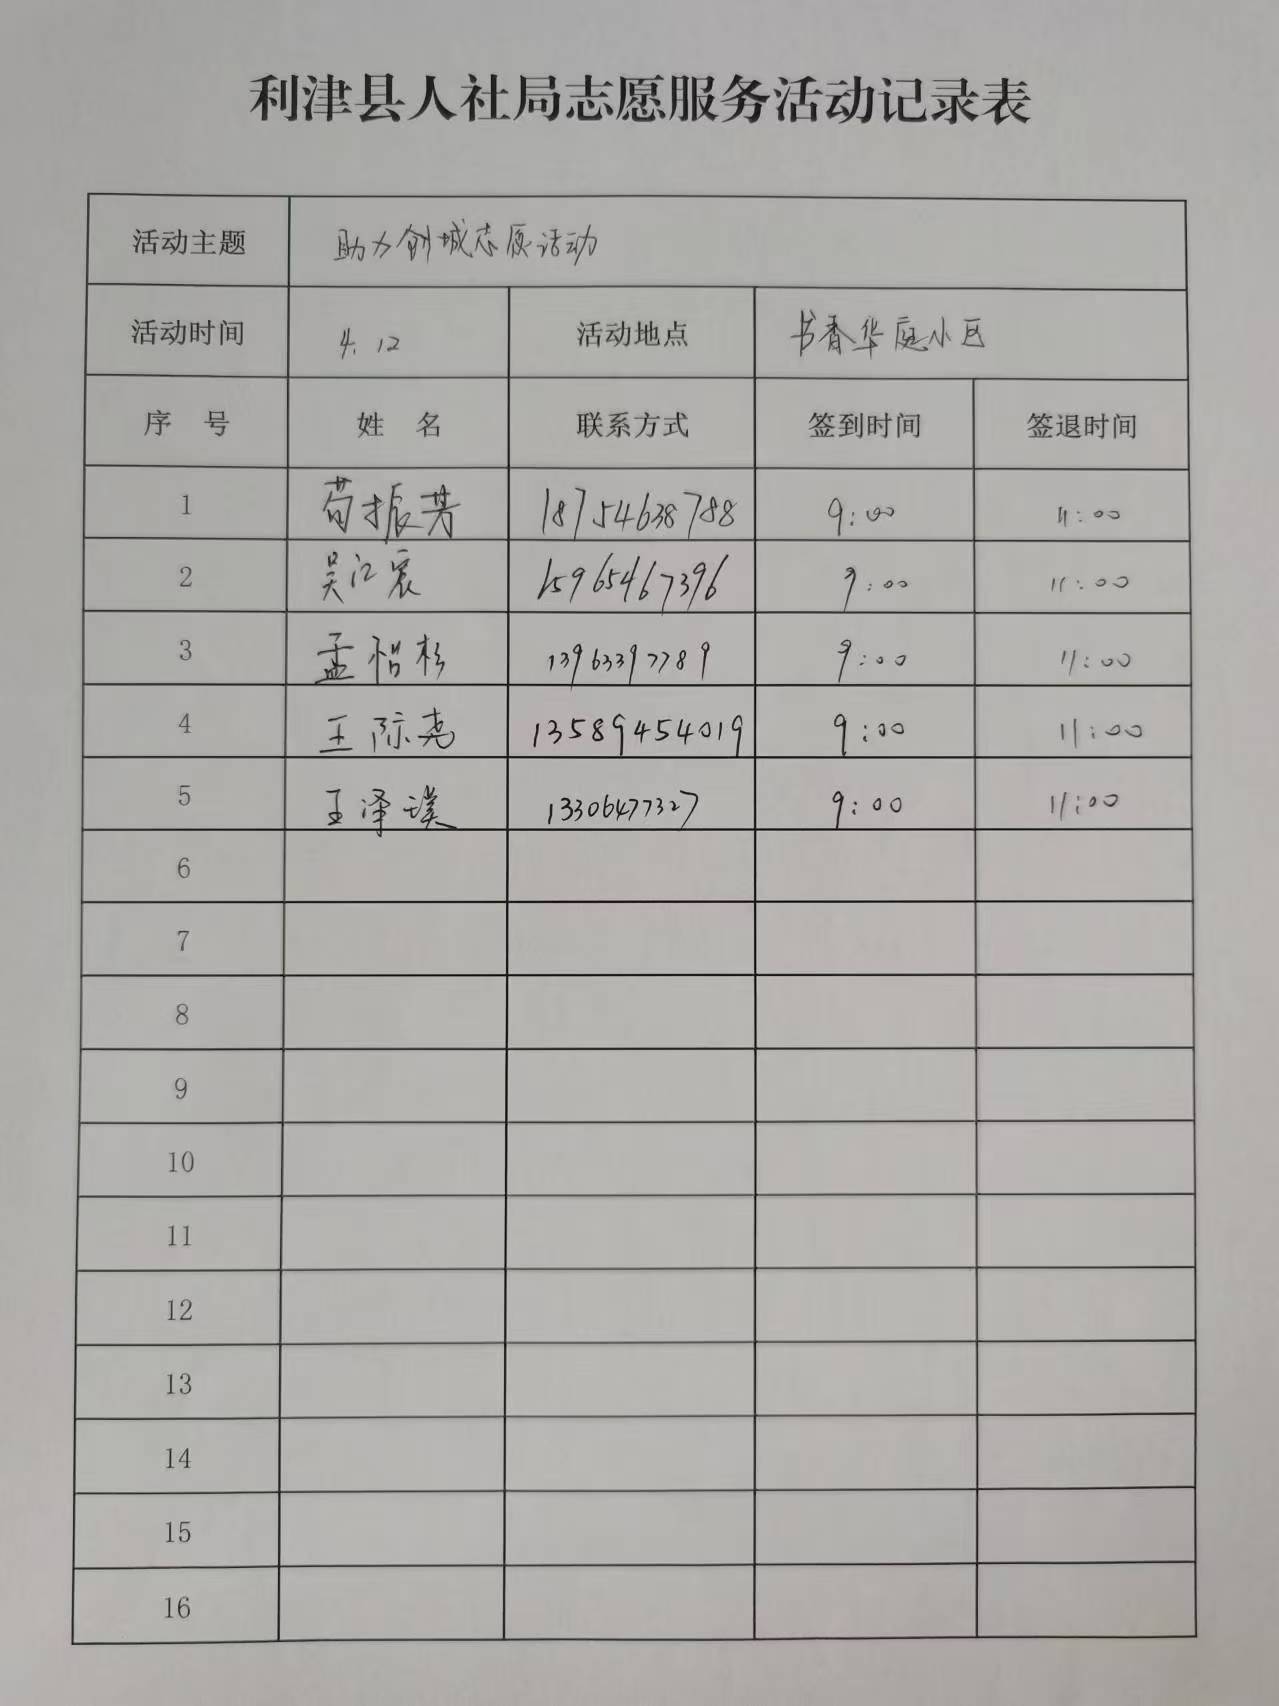 利津县人社局志愿服务活动记录表
活动主题 助力创城志愿活动
活动时间 4.12 活动地点 书香华庭小区
序 号 姓 名 联系方式 签到时间 签退时间
1 苟振芳 18754638788 9:00 11:00
2 吴江宸 15965467396 9:00 11:00
3 孟楷杉 13963397789 9:00 11:00
4 王际尧 13589454019 9:00 11:00
5 王泽璞 13306477327 9:00 11:00
6
7
8
9
10
11
12
13
14
15
16